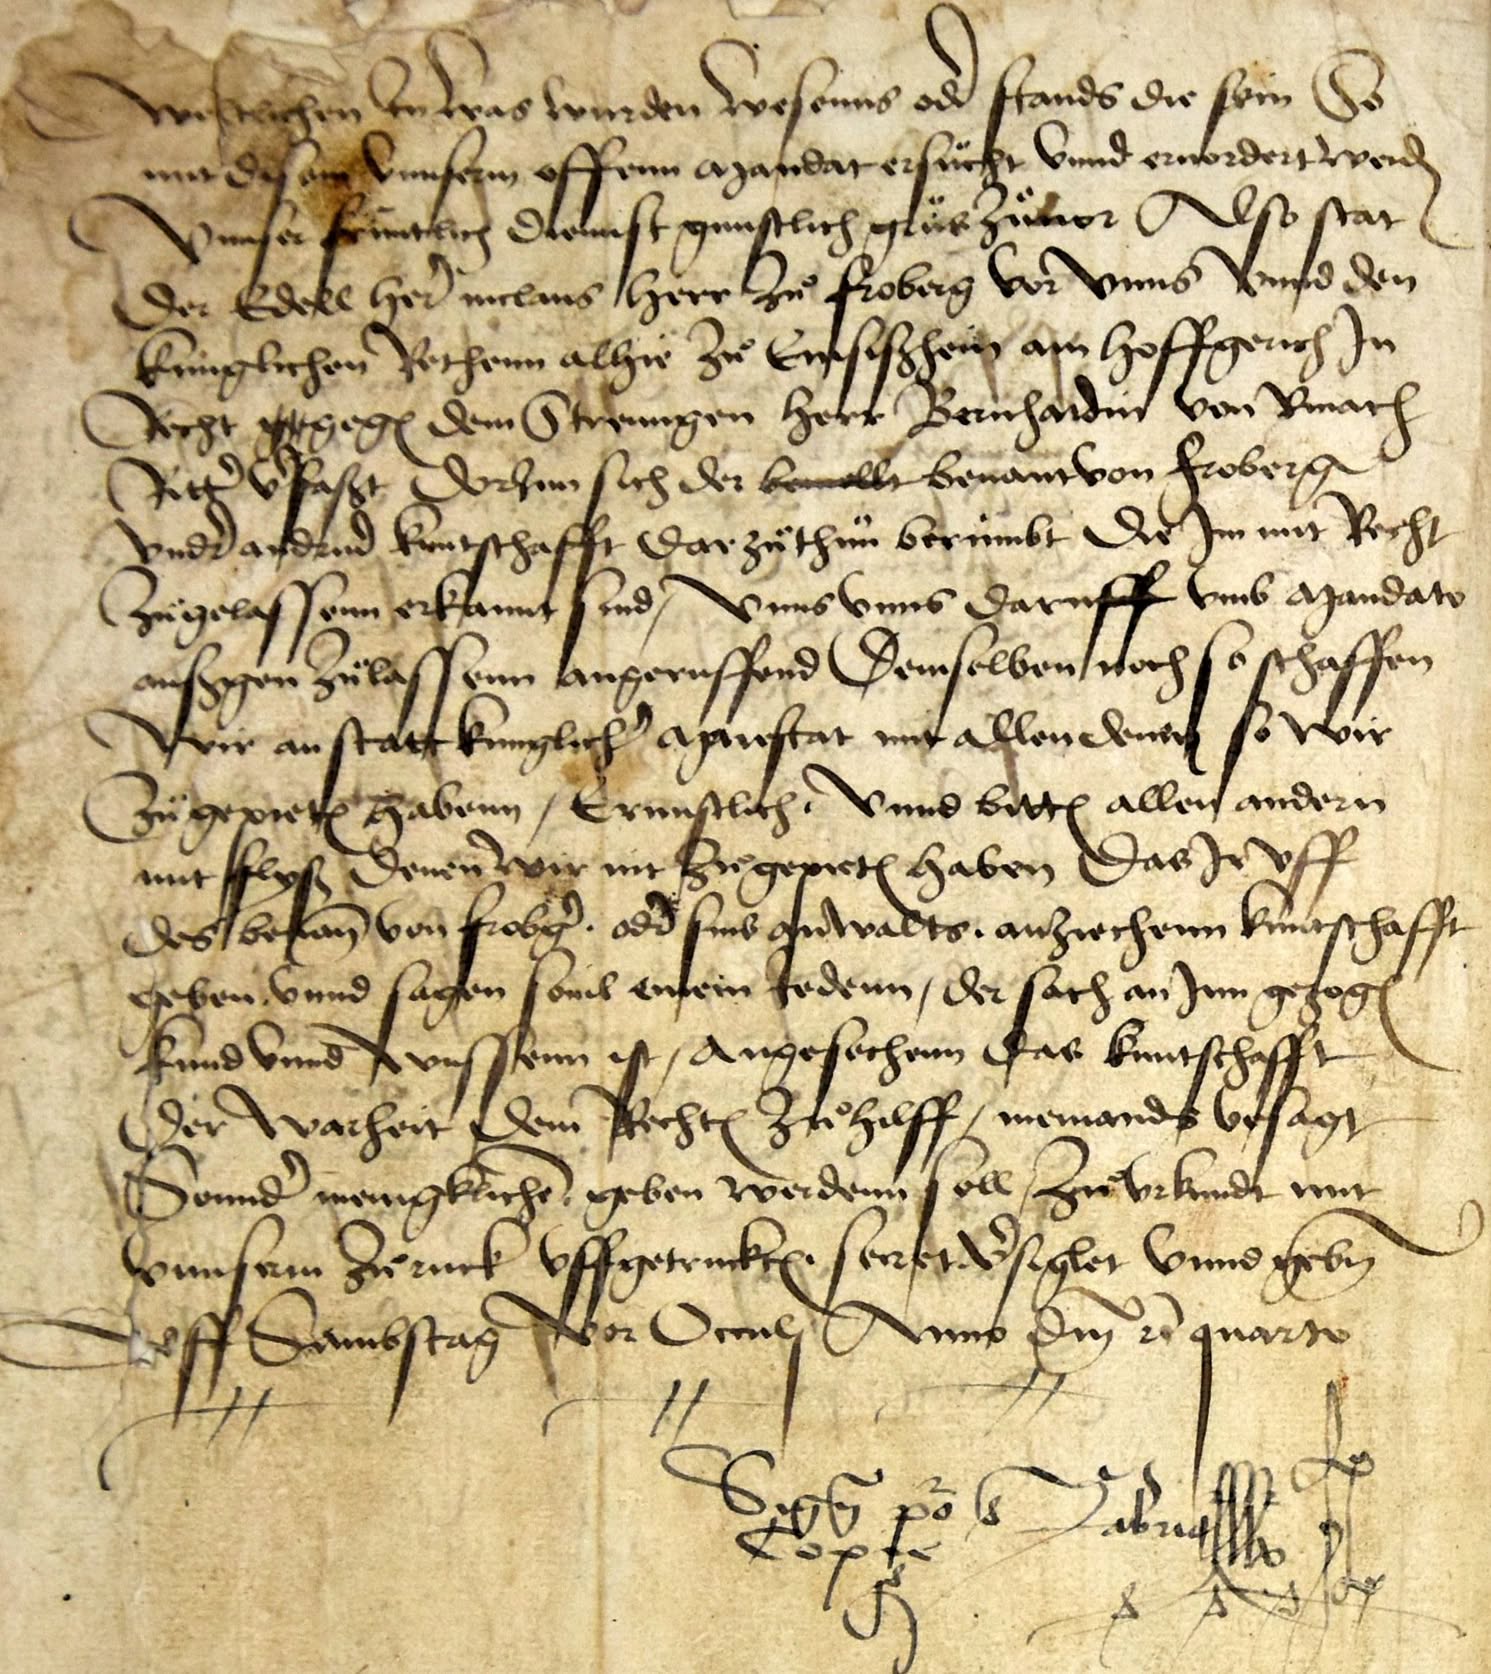 weltlichen In was wurden wesenns oder stands die sein So
mit disem unnserm offenn Mandat ersuͦcht vnnd eruordert werden
Vnnser fruntlich diennst gunstlich gruͦs zuͦuor Also stat
der Edell her niclaus herr zuͦ froberg vor vnns vnnd den
kunglichen Rethenn alhie zuͦ Ensißhein am hoffgerich In
Recht gegen dem Strenngen herr Bernhardin von Rinach
Ritter verfaßt Dorinn sich der benant von froberg
vnder andrnd kuntschafft dar zuͦthuͦn berumbt Die Im mit Recht
zuͦgelassenn erkannt sind / Vnns vnns daruff vmb Mandate
ußzgen zuͦlassenn angeruffend Demselben noch so schaffen
Wir an statt kunglicher Maiestat mit allen denen so wir
zuͦgepieten habenn / Ernnstlich Vnnd bitten allen andern
mit flyß denen wir nit zuͦgepieten haben Das Ir vff
des benan von frobg oder sins anwalts anziechenn kuntschafft
geben vnnd sagen souil einem Jedenn / der sach an Inn gezogen
kund vnnd wussenn ist / Angesechenn das kuntschafft
der warheit dem Rechten zuͦ hilff / niemands versagt
Sonnder menigklichem geben werdenn soll / Zuͦ vrkundt mit
vnnserm zuͦ ruck vffgetruckten secret versiglet Vnnd geben
vff Sambstag vor Occuli Anno dm rc quarto
Copie